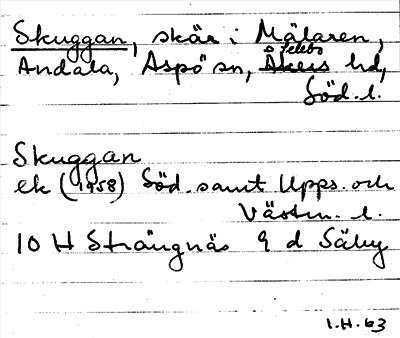 Skuggan, skär i Mälaren,
Andala, Aspö sn, Selebo hd,
Söd. l.
Skuggan
ek (1958) Söd. samt Upps. och
Västm. l.
10 H Strängnäs 9 d Säby
I.H. 63